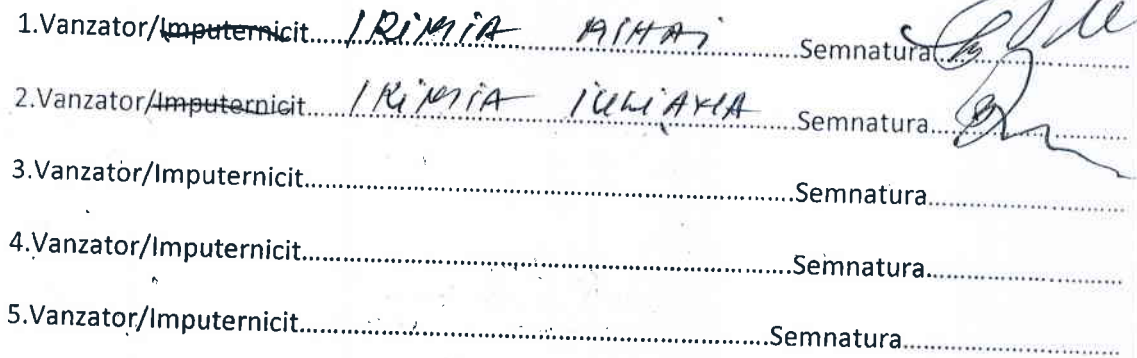 1.Vanzator/Imputernicit.....IRIMIA MIHAI.....Semnatura.....
2.Vanzator/Imputernicit.....IRIMIA IULIANA.....Semnatura.....
3.Vanzator/Imputernicit.....Semnatura.....
4.Vanzator/Imputernicit.....Semnatura.....
5.Vanzator/Imputernicit.....Semnatura.....